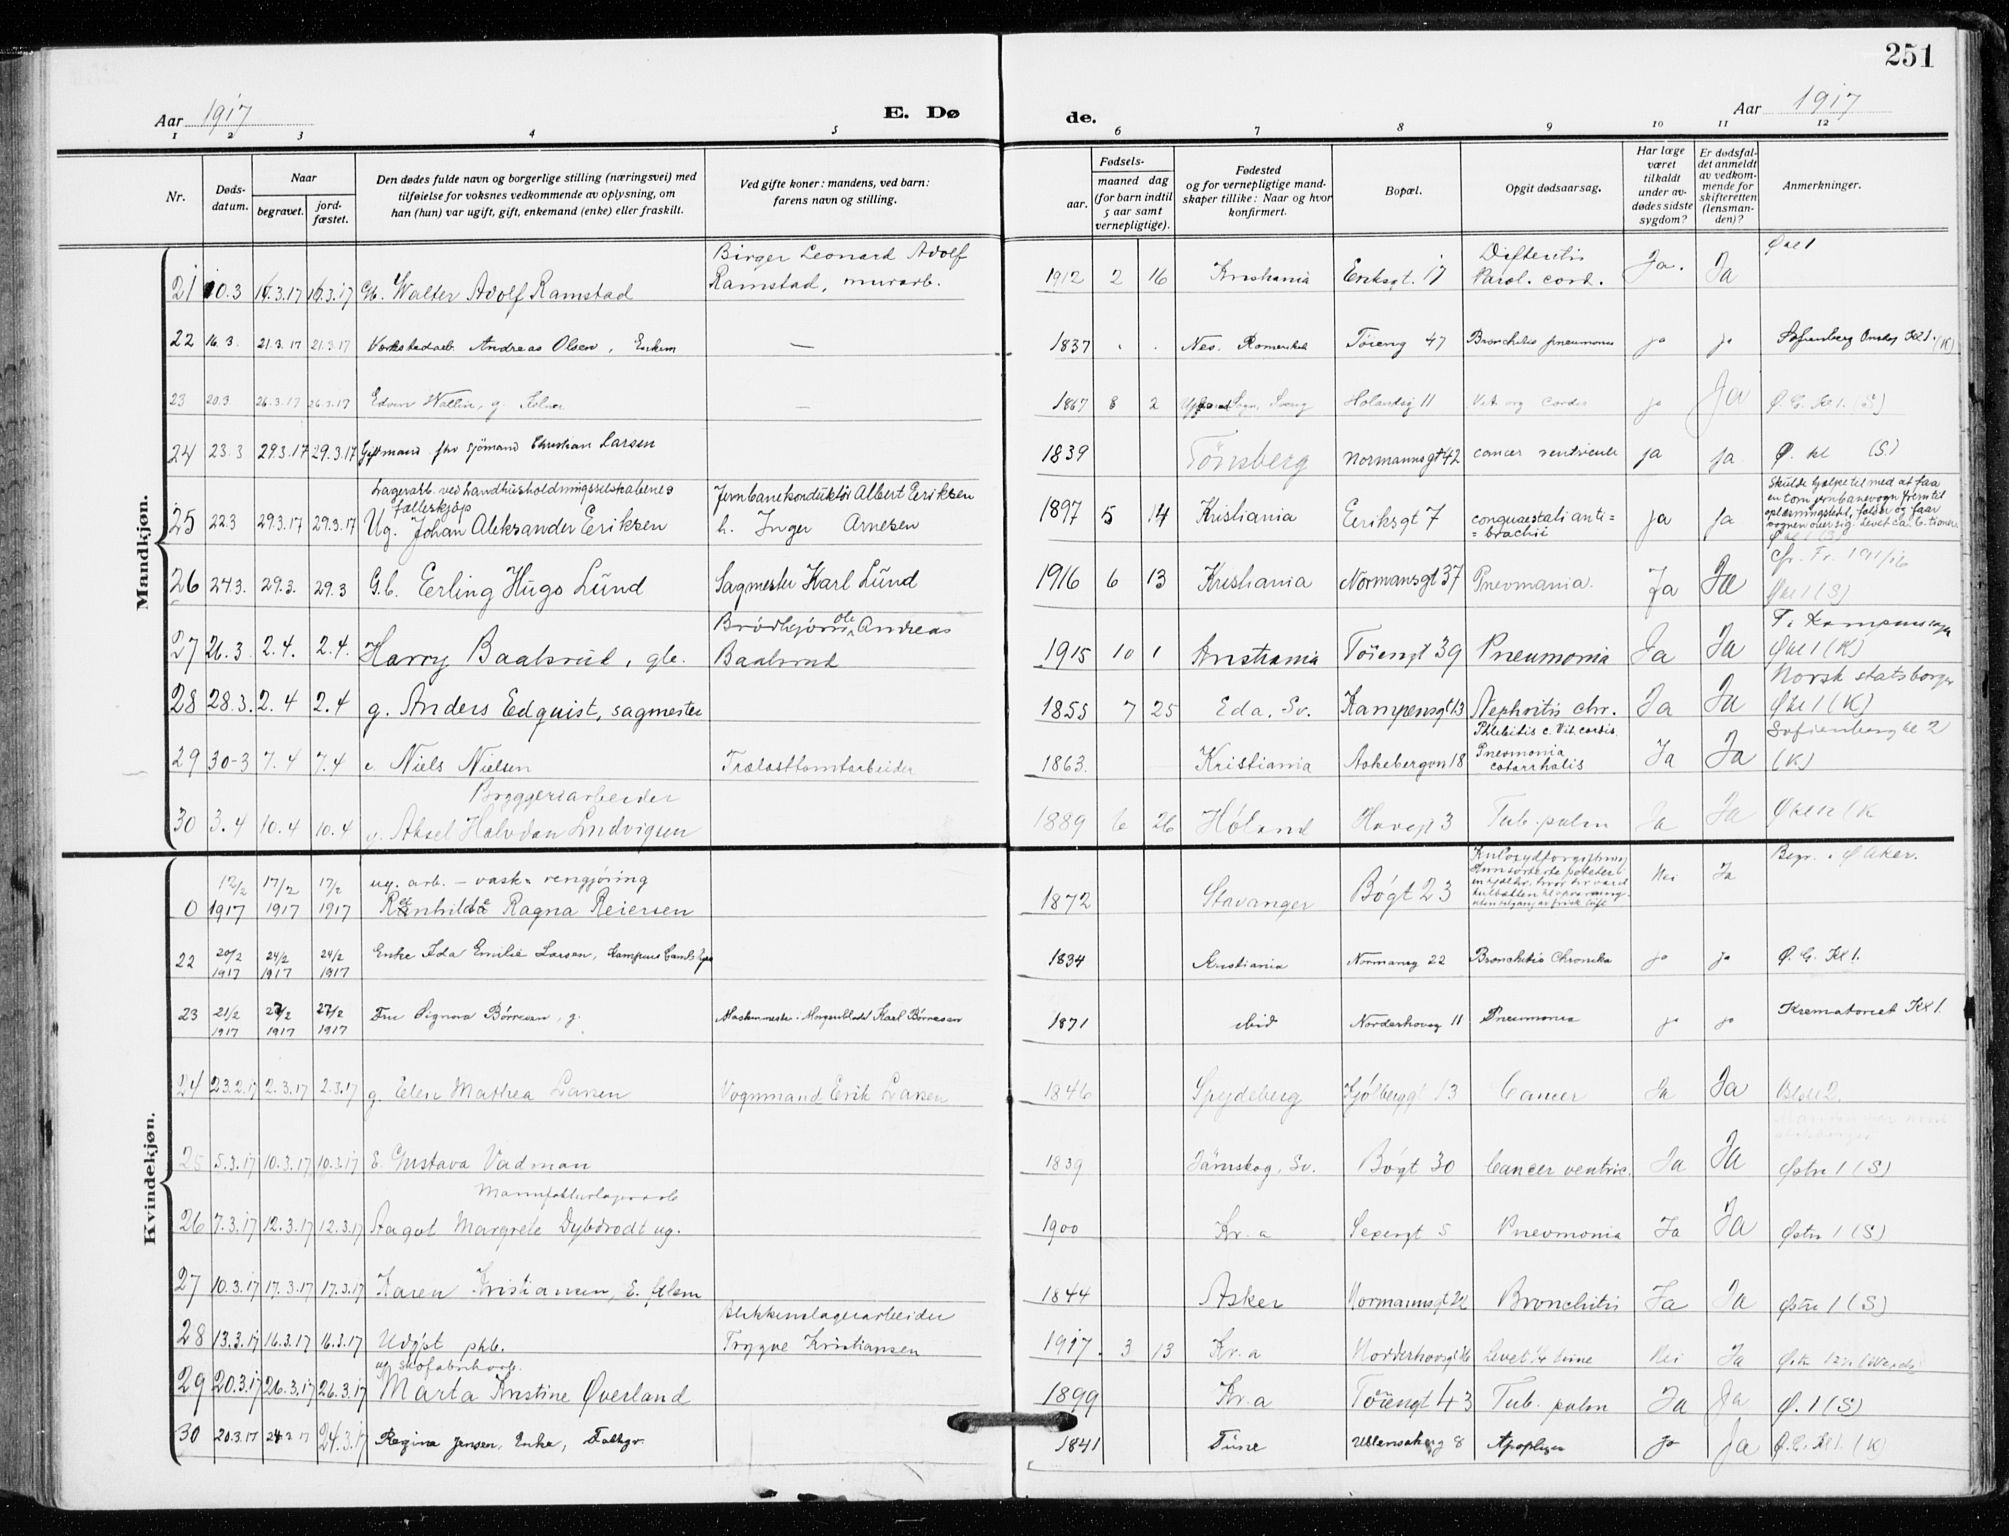 251
Aar 1917
E. Døde.
Aar 1917
1 2 3 4 5 6 7 8 9 10 11 12
Nr.
Døds-
datum.
Naar
begravet.
jord-
fæstet.
Den dødes fulde navn og borgerlige stilling (næringsvei) med
tilføielse for voksnes vedkommende av oplysning, om
han (hun) var ugift, gift, enkemand (enke) eller fraskilt.
Ved gifte koner: mandens, ved barn:
farens navn og stilling.
Fødsels-
aar.
maaned dag
(for barn indtil
5 aar samt
vernepligtige).
Fødested
og for vernepligtige mand-
skaper tillike: Naar og hvor
konfirmert.
Bopæl.
Opgit dødsaarsag.
Har læge
været
tilkaldt
under av-
dødes sidste
sygdom?
Er dødsfal-
det anmeldt
av vedkom-
mende for
skifteretten
(lensman-
den)?
Anmerkninger.
Mandkjøn.
Birger Leonard Adolf
21 10.3 16.3.17 16.3.17 Gb. Walter Adolf Ramstad Ramstad, murarb. 1912 2 16 Kristiania Eriksgt. 17 Difteritis Paral. cord. Ja. Ja
22 16.3. 21.3.17 21.3.17 Andreas Olsen, Enkem — 1837 Nes. Romerike Tøieng 47 Bronchitis pneumonia ja ja Sofienberg Kl 1. (K)
23 20.3 26.3.17 26.3.17 Edvin Wallin, g. — 1867 8 2 11 Vit. org cordis ja Ja Ø. G. Kl 1. (S)
24 23.3 29.3.17 29.3.17 Gift mand fhv sjömand Christian Larsen 1839 Tönsberg Normannsgt 42 cancer ventriculi ja ja Ø. kl (S)
Lagerarb. ved Landhusholdningsselskabenes Jernbanekonduktör Albert Eriksen
fælleskjøp
25 22.3 29.3.17 29.3.17 Ug. Johan Aleksander Eriksen h. Inger Arnesen 1897 5 14 Kristiania Eriksgt 7 conquaestati anti=
=brachii ja ja Skulde hjælpe til med at faa
en tom jernbanevogn frem til
26 24.3. 29.3. 29.3 G.b. Erling Hugo Lünd Sagmester Karl Lünd 1916 6 13 Kristiania Normansgt 37 Pnevmania. Ja Ja Økl 1 (S)
27 26.3 2.4. 2.4. Harry Baalsrud, gb. Ole Andreas
Baalsrud 1915 10 1 Kristiania Töiengt 39 Pneumonia Ja Ja Økl 1 (K)
28 28.3. 2.4 2.4 g. Anders Edquist, sagmester 1855 7 25 Eda, Sv. Kampensgt 13 Nephritis chr. Ja Ja Norsk statsborger
Økl 1 (K)
29 30-3 7.4 7.4 e. Niels Nielsen Trælasttomtarbeider 1863. Kristiania Aakebergvn 18 Phlebitis c. Vit. cordis.
Pneomonia
catarrhalis Ja Ja Sofienberg kl 2
(K)
Bryggeriarbeider
30 3.4 10.4 10.4 Aksel Halvdan Ludvigsen 1889 6 26 Høland Havegt 3 Tub. pulm Ja Ja
Kvindekjøn.
ug. arb. – vask & rengjøring
0 12/2 1917 17/2 1917 17/2 1917 Ragna Reiersen 1872 Stavanger Bøgt 23 Kulosydforgiftning Nei Ja Begr. Ø Aker.
22 20/2 1917 24/2 1917 24/2 1917 Enke Ida Emilie Larsen, Kampens Gamlehjem 1834 Kristiania Normansg 22 Bronchitis Chronika ja ja Ø. G. Kl 1.
23 21/2 1917 27/2 1917 27/2 1917 Fru Signora Börresen, g. Maskinmester i Morgenbladet Karl Börresen 1871 ibid Norderhovsg 11 Pneumonia ja ja Krematoriet Kl 1.
24 23.2.17 2.3.17 2.3.17 g. Elen Mathea Larsen Vognmand Erik Larsen 1846 Spydeberg Kjølberggt 13 Cancer Ja Ja
25 5.3.17 10.3.17 10.3.17 E. Gustava Vadman 1839 Järnskog, Sv. Bøgt 30 Cancer ventric. Ja Ja Østre 1 (S)
Manufakturlagerarb
26 7.3.17 12.3.17 12.3.17 Aagot Margrete Dybdrodt ug. 1900 Kr.a Sexesgt 5 Pneomonia Ja Ja Østre 1 (S)
27 10.3.17 17.3.17 17.3.17 Karen Kristiansen, E. 1844 Asker Normannsgt 22 Bronchitis Ja Ja Østre 1 (S)
Blikkenslagerarbeider
28 13.3.17 16.3.17 16.3.17 Udøpt pkb. Trygve Kristiansen 1917. 3 13 Kr.a Norderhovsgt 16 Levet 1/4 time Nei Ja
ug. skofabrikarb.
29 20.3.17 26.3.17 26.3.17 Marta Kristine Øverland 1899 Kr.a Töiengt 43 Tub. pulm Ja Ja Ø. 1 (S)
30 20.3.17 24.3.17 24.3.17 Regine Jensen, Enke, 1841 Tune Ullensakerg 8 Apoplexia ja Ja Ø. G. Kl 1. (K)